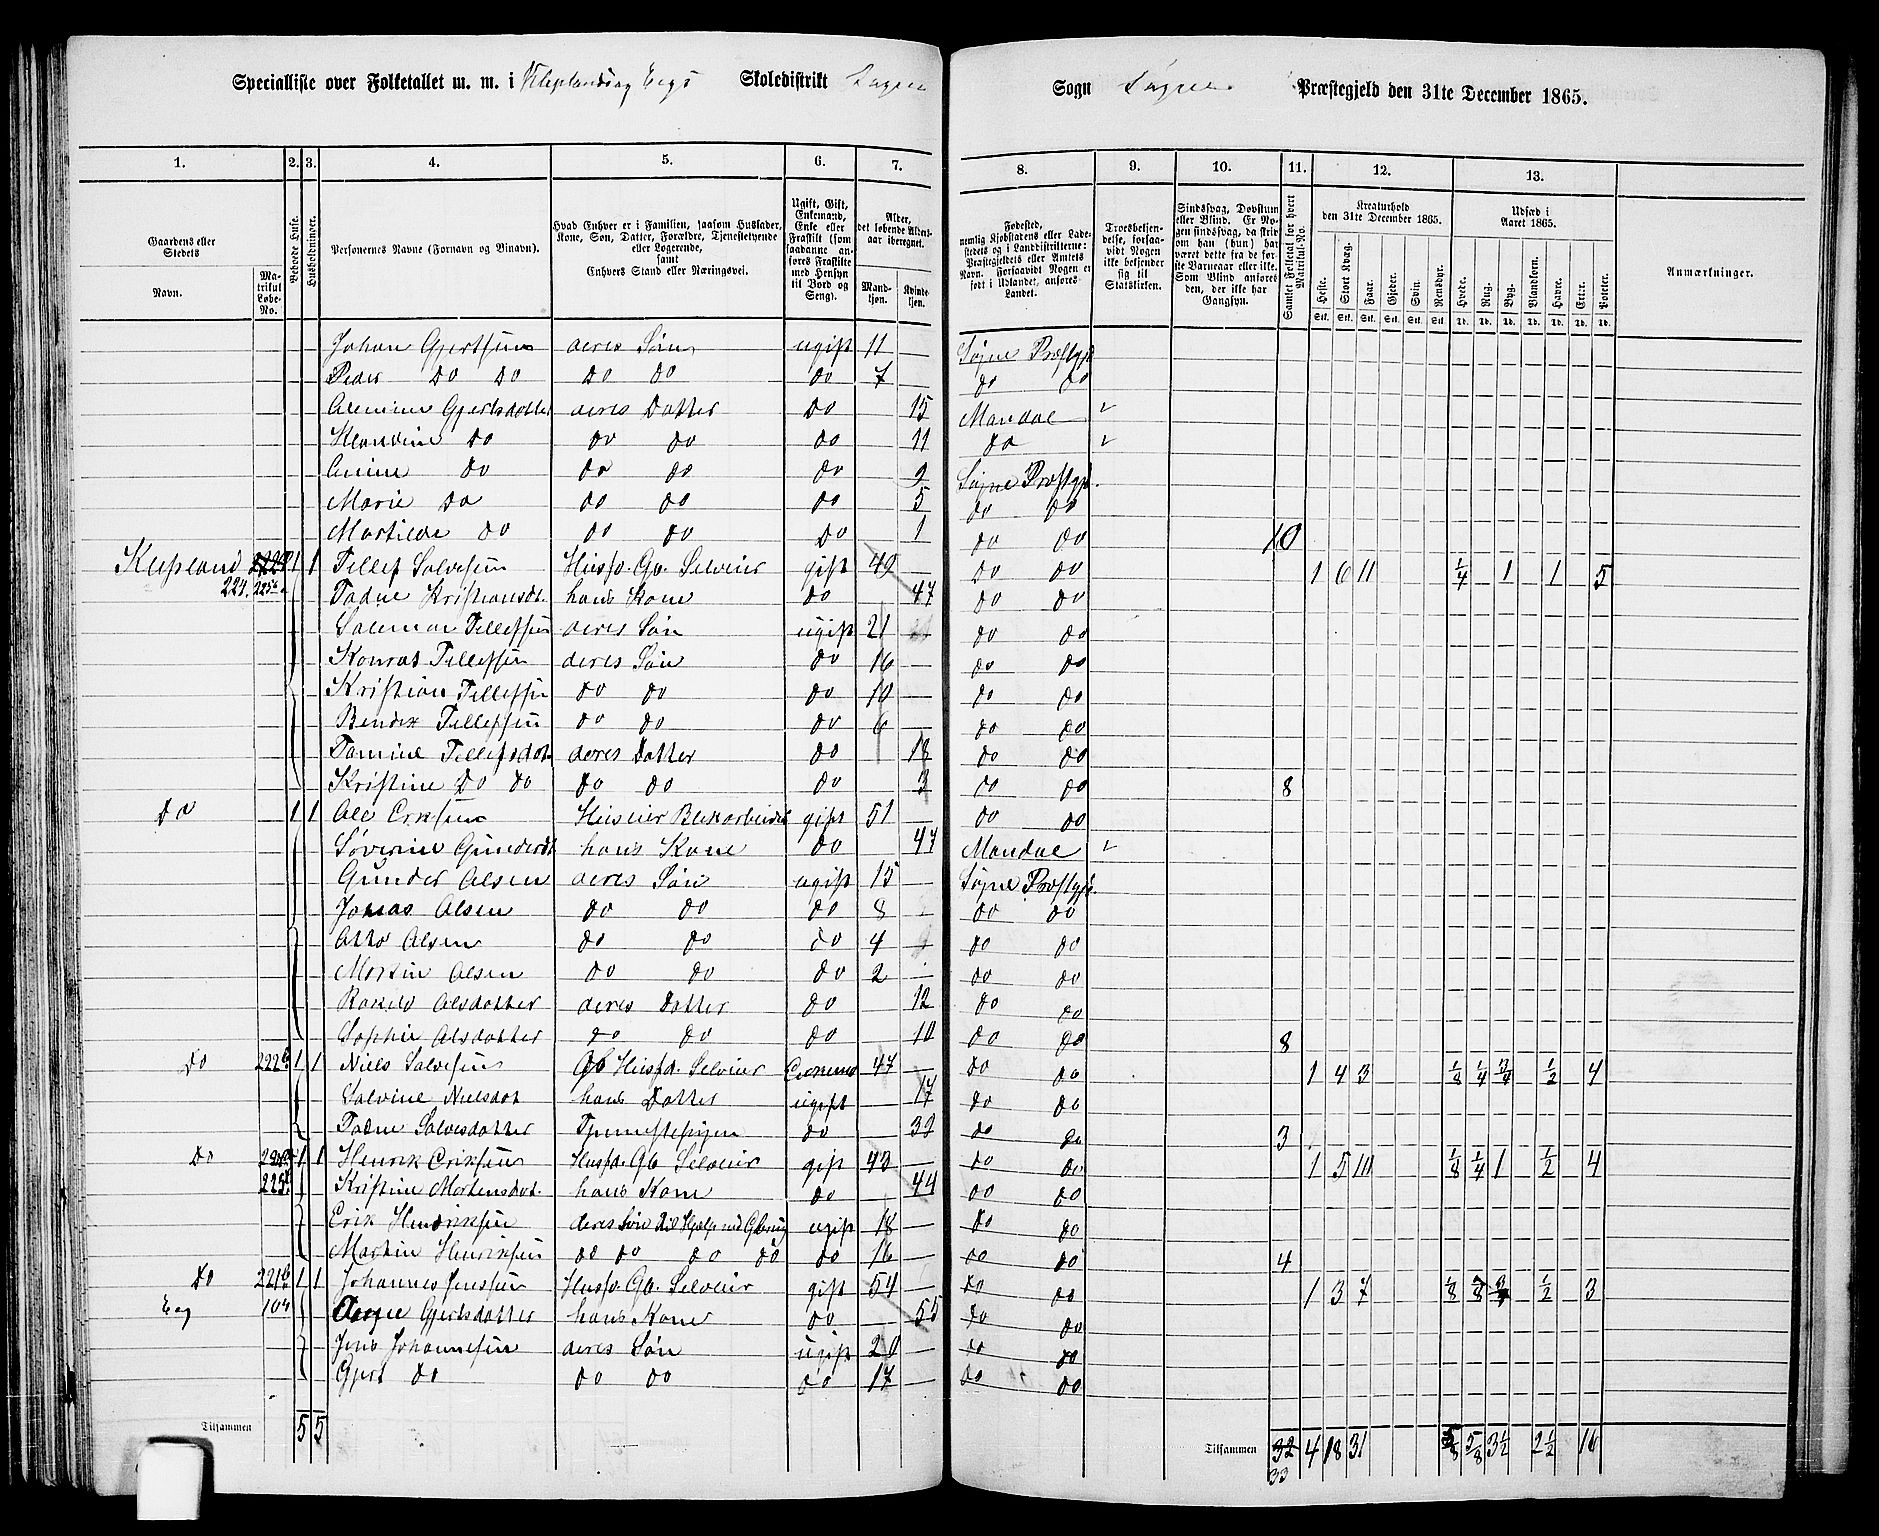 Specialliste over Folketallet m. m. i Kleplandsog Eegs Skoledistrikt Søgne Sogn Søgne Præstegjeld den 31te December 1865.
1. 2. 3. 4. 5. 6. 7. 8. 9. 10. 11. 12. 13.
Gaardens eller Stedets Navn. Matrikul Løbe-No.
Beboede Huse.
Husholdninger.
Personernes Navne (Fornavn og Binavn).
Hvad Enhver er i Familien, saasom Husfader, Kone, Søn, Datter, Forældre, Tjenestetyende eller Logerende, samt Enhvers Stand eller Næringsvei.
Ugift, Gift, Enkemand, Enke eller Fraskilt (som saadanne anføres Fraskilte med Hensyn til Bord og Seng).
Alder, det løbende Aldersaar iberegnet. Mandkjøn. Kvindekjøn.
Fødested, nemlig Kjøbstadens eller Ladestedets og i Landdistrikterne: Præstegjeldets eller Amtets Navn. Forsaavidt Nogen er født i Udlandet, anføres Landet.
Troesbekjendelse, forsaavidt Nogen ikke bekjender sig til Statskirken.
Sindssvag, Døvstum eller Blind. Er Nogen sindssvag, da skriv om han (hun) har været dette fra de første Barneaar eller ikke. Som Blind anføres den, der ikke har Gangsyn.
Samlet Folketal for hvert Matrikul-No.
Kreaturhold den 31te December 1865. Heste. Stort Kvæg. Faar. Gjeder. Svin. Rensdyr.
Udsæd i Aaret 1865. Hvede. Rug. Byg. Blandkorn. Havre. Erter. Poteter.
Anmærkninger.
Johan Gjertsen deres Søn ugift 11 — Søgne Præstgjd
Peder Do Do Do Do Do 7 — Do Do
Gjertsdatter deres Datter Do 15 Mandal
Do Do Do Do 11 Do
Do Do Do Do 9 Søgne Præstgjd.
Marie Do Do Do Do 5 Do Do
Martilde Do Do Do Do 1 Do Do 10
Klepland 1 1 Tellef Salvesen Husfd. Gb. Selveier gift 49 — Do Do 1 6 11 1/4 1 1 5
224. Kristiansdt. hans Kone Do 47 Do Do
Salemon Tellefsen deres Søn ugift 21 Do Do
Konrad Tellefsen deres Søn Do 16 — Do Do
Kristian Tellefsen Do Do Do 10 — Do Do
Bendix Tellefsen Do Do Do 6 — Do Do
Tomine Tellefsdat. deres Datter Do 18 Do Do
Kristine Do Do Do Do Do 3 Do Do 8
Do 1 1 Ole Eriksen gift 51 — Do Do
Søverine hans Kone Do 47 Mandal
Gunder Olsen deres Søn ugift 15 — Søgne Præstgjd.
Jonas Olsen Do Do Do 8 Do Do
Otto Olsen Do Do Do 4 Do Do
Martin Olsen Do Do Do 2 Do Do
Olsdatter deres Datter Do 12 Do Do
Sophie Olsdatter Do Do Do 10 Do Do 8
Do 222b 1 1 Niels Salvesen Gb Husfd. Selveier Enkemand 47 — Do Do 1 4 3 1/8 1/4 3/4 1/2 4
Salvine Nielsdat hans Datter ugift 17 Do Do
Salvesdatter Tjenestepige Do 32 Do Do 3
Do 1 1 Henrik Eriksen Husfd. Gb Selveier gift 43 — Do Do 1 5 10 1/8 1/4 1 1/2 4
Kristine Mortensdat. hans Kone Do 44 Do Do
Erik Henriksen deres Søn til Hjælp ved Gbrug ugift 18 — Do Do
Martin Henriksen Do Do Do Do Do 16 — Do Do 4
Do 221b 1 1 Johannes Jensen Husfd. Gb. Selveier gift 54 — Do Do 1 3 7 1/2 3
Eeg Gjertsdatter hans Kone Do 55 Do Do
Jens Johannesen deres Søn ugift 20 — Do Do
Gjert Do Do Do Do 17 — Do Do
Tilsammen 5 5 Tilsammen 32 4 18 31 5/8 5/8 3 1/2 2 1/2 16
33